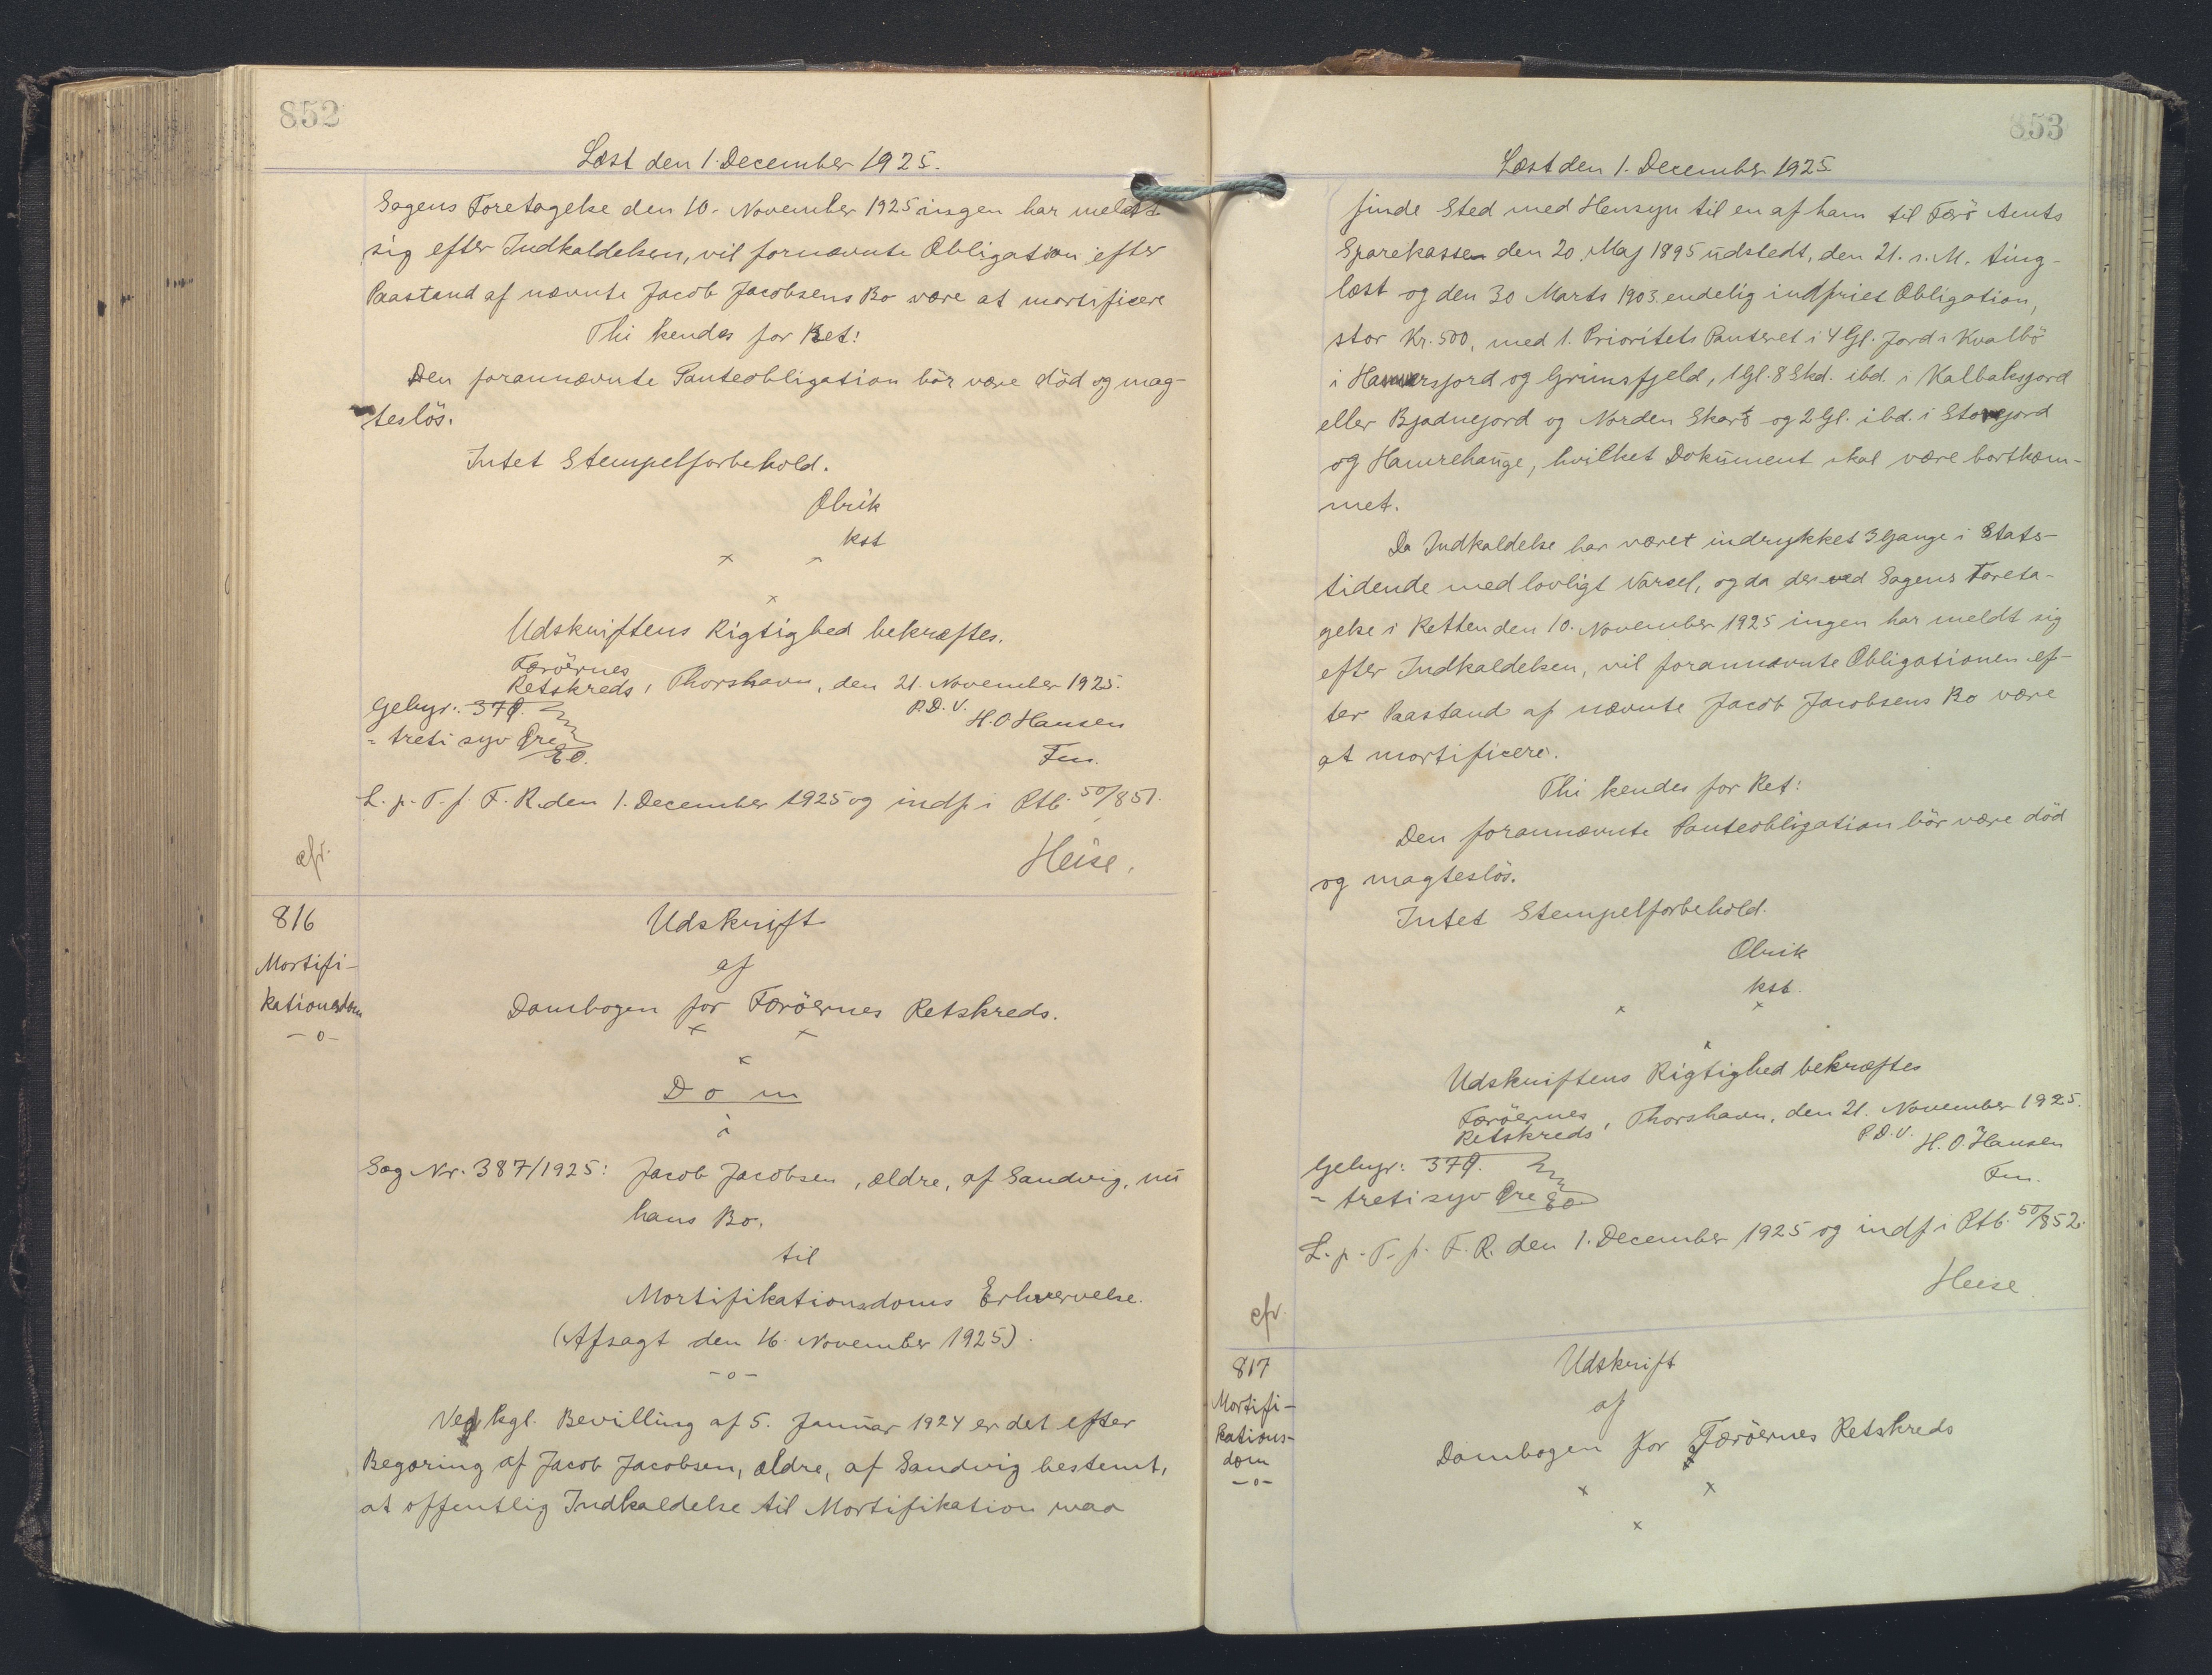 852
Læst den 1. December 1925.
Sagens Foretagelse den 10. November 1925 ingen har meldt
sig efter Indkaldelsen, vil fornævnte Obligation efter
Paastand af nævnte Jacob Jacobsens Bo være at mortificere
Thi kendes for Ret:
Den forannævnte Panteobligation bör være död og mag-
teslös.
Intet Stempelforbehold.
Olrik
kst
x x
x
Udskriftens Rigtighed bekræftes.
Færöernes
Retskreds, Thorshavn, den 21. November 1925.
P.D.V.
H.O. Hansen
Fm.
Gebyr: 37 Ø.
= treti syv Øre
EO.
L. p. T. f. F. R. den 1. December 1925 og indf i Ptb. 50/851.
Heise.
cfr.
816
Mortifi-
kationsdom
-o-
Udskrift
af
Dombogen for Færöernes Retskreds.
x x
x
Dom
i
Sag Nr. 387/1925: Jacob Jacobsen, ældre, af Sandvig, nu
hans Bo.
til
Mortifikationsdoms Erhvervelse.
(Afsagt den 16. November 1925).
-o-
Ved kgl. Bevilling af 5. Januar 1924 er det efter
Begæring af Jacob Jacobsen, ældre, af Sandvig bestemt,
at offentlig Indkaldelse til Mortifikation maa
853
Læst den 1. December 1925
finde Sted med Hensyn til en af ham til Færö Amts
Sparekasse den 20. Maj 1895 udstedt, den 21. s. M. ting-
læst og den 30 Marts 1903 endelig indfriet Obligation,
stor Kr. 500, med 1. Prioritets Panteret i 4 Gl. Jord i Kvalbö
i Hamersjord og Grimsfjeld, 1 Gl. 8 Skd. ibd. i Kalbaksjord
eller Bjadnejord og Norden Skarð og 2 Gl. ibd. i Storejord
og Hamrehauge, hvilket Dokument skal være bortkom-
met.
Da Indkaldelse har været indrykket 3 Gange i Stats-
tidende med lovligt Varsel, og da der ved Sagens Foreta-
gelse i Retten den 10. November 1925 ingen har meldt sig
efter Indkaldelsen, vil forannævnte Obligationen ef-
ter Paastand af nævnte Jacob Jacobsens Bo være
at mortificere.
Thi kendes for Ret:
Den forannævnte Panteobligation bör være död
og magteslös.
Intet Stempelforbehold.
Olrik
kst.
x x
x
Udskriftens Rigtighed bekræftes
Færöernes
Retskreds, Thorshavn, den 21. November 1925.
P.D.V.
H.O. Hansen
Fm.
Gebyr: 37 Ø.
= treti syv Øre
EO
L. p. T. f. F. R. den 1. December 1925 og indf i Ptb. 50/852.
Heise.
cfr.
817
Mortifi-
kations-
dom
-o-
Udskrift
af
Dombogen for Færöernes Retskreds
x x
x